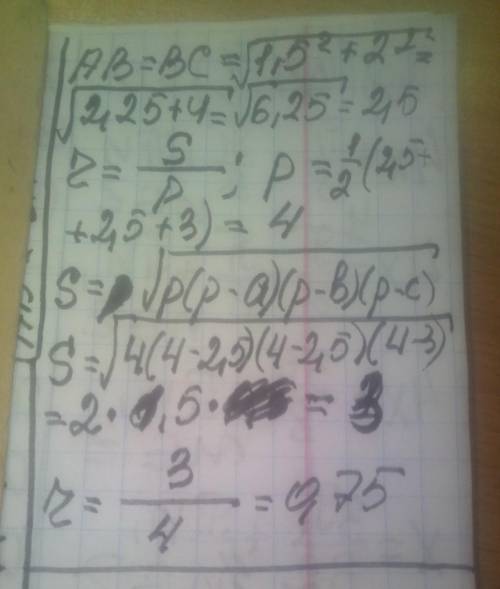 AB=BC=√1,5²+2²=
√2,25+4=√6,25=2,5
r= S/p; p=1/2(2,5+
+2,5+3)=4
S=√p(p-a)(p-b)(p-c)
S=√4(4-2,5)(4-2,5)(4-3)
=2·1,5·=3
r= 3/4 =0,75